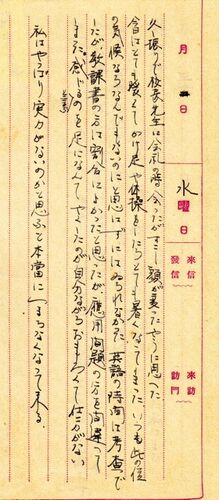 月 一日
水曜日
來信 發信
來訪 訪問
久し振りで校長先生に会礼の時会ったがすこし顔が変ったやうに思へた
今日はとても暖くてかけ足や体操をしたらとても暑くなってしまった いつも此の位
の気候ならなんでもないのにと思はずにはゐられなかった 英語の時間に考査で
したが教課書の方は割合によかったと思ったが應用問題の方を間違って
しまった 感じるのを足になんてやったのが自分ながらおもしろくて仕方がない
私はやっぱり実力がないのかと思ふと本当につまらなくなって来る。